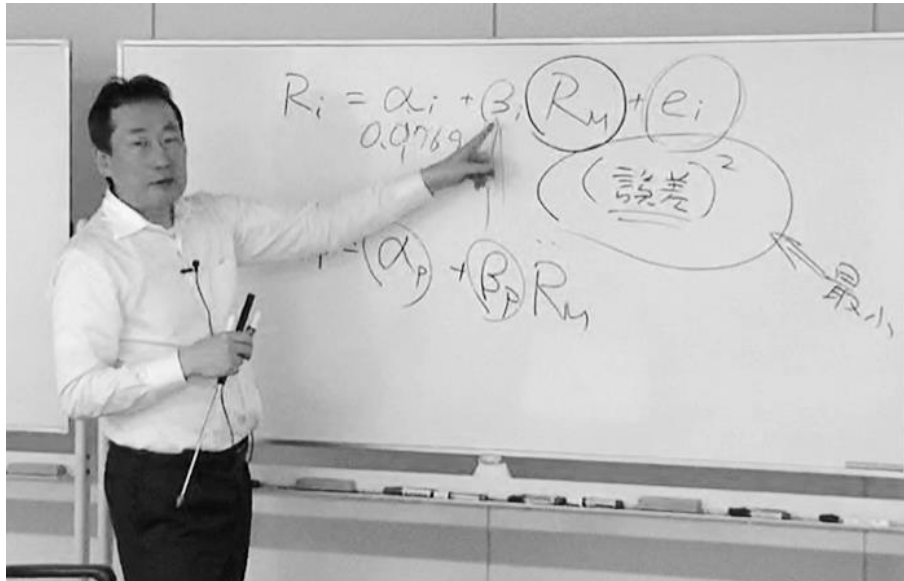 Ri = αi + βi RM + ei
0.9769
(誤差)²
= αp + βp RM
最小